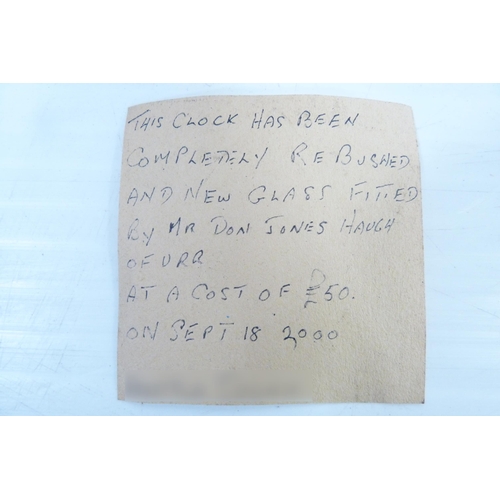 THIS CLOCK HAS BEEN
COMPLETELY RE BUSHED
AND NEW GLASS FITTED
BY MR DON JONES HAUGH
OF URR
AT A COST OF £50.
ON SEPT 18 2000